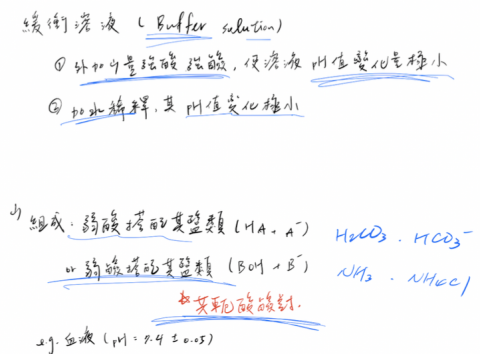 緩衝溶液 ( Buffer solution)
① 外加少量強酸強酸, 使溶液 pH值變化量極小
② 加水稀釋, 其 pH值變化極小
1) 組成: 弱酸搭配其鹽類 (HA + A⁻) H2CO3 . HCO3⁻
or 弱酸搭配其鹽類 (BOH + B⁻) NH3 . NH4Cl
共軛酸酸對.
e.g. 血液 (pH = 7.4 ± 0.05)